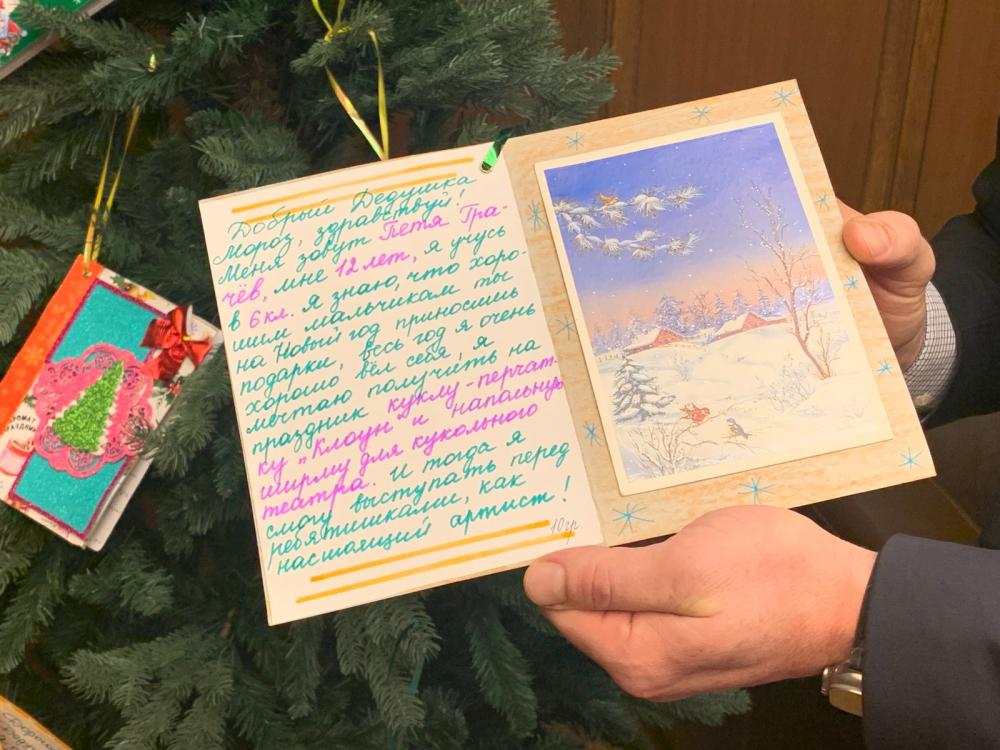 Добрый Дедушка
Мороз, здравствуй!
Меня зовут Петя Гра-
чёв, мне 12 лет, я учусь
в 6 кл. Я знаю, что хоро-
шим мальчикам ты
на Новый год приносишь
подарки, весь год я очень
хорошо вёл себя, я
мечтаю получить на
праздник куклу-перчат-
ку „Клоун" и напольную
ширму для кукольного
театра. И тогда я
смогу выступать перед
ребятишками, как
настоящий артист!
10гр